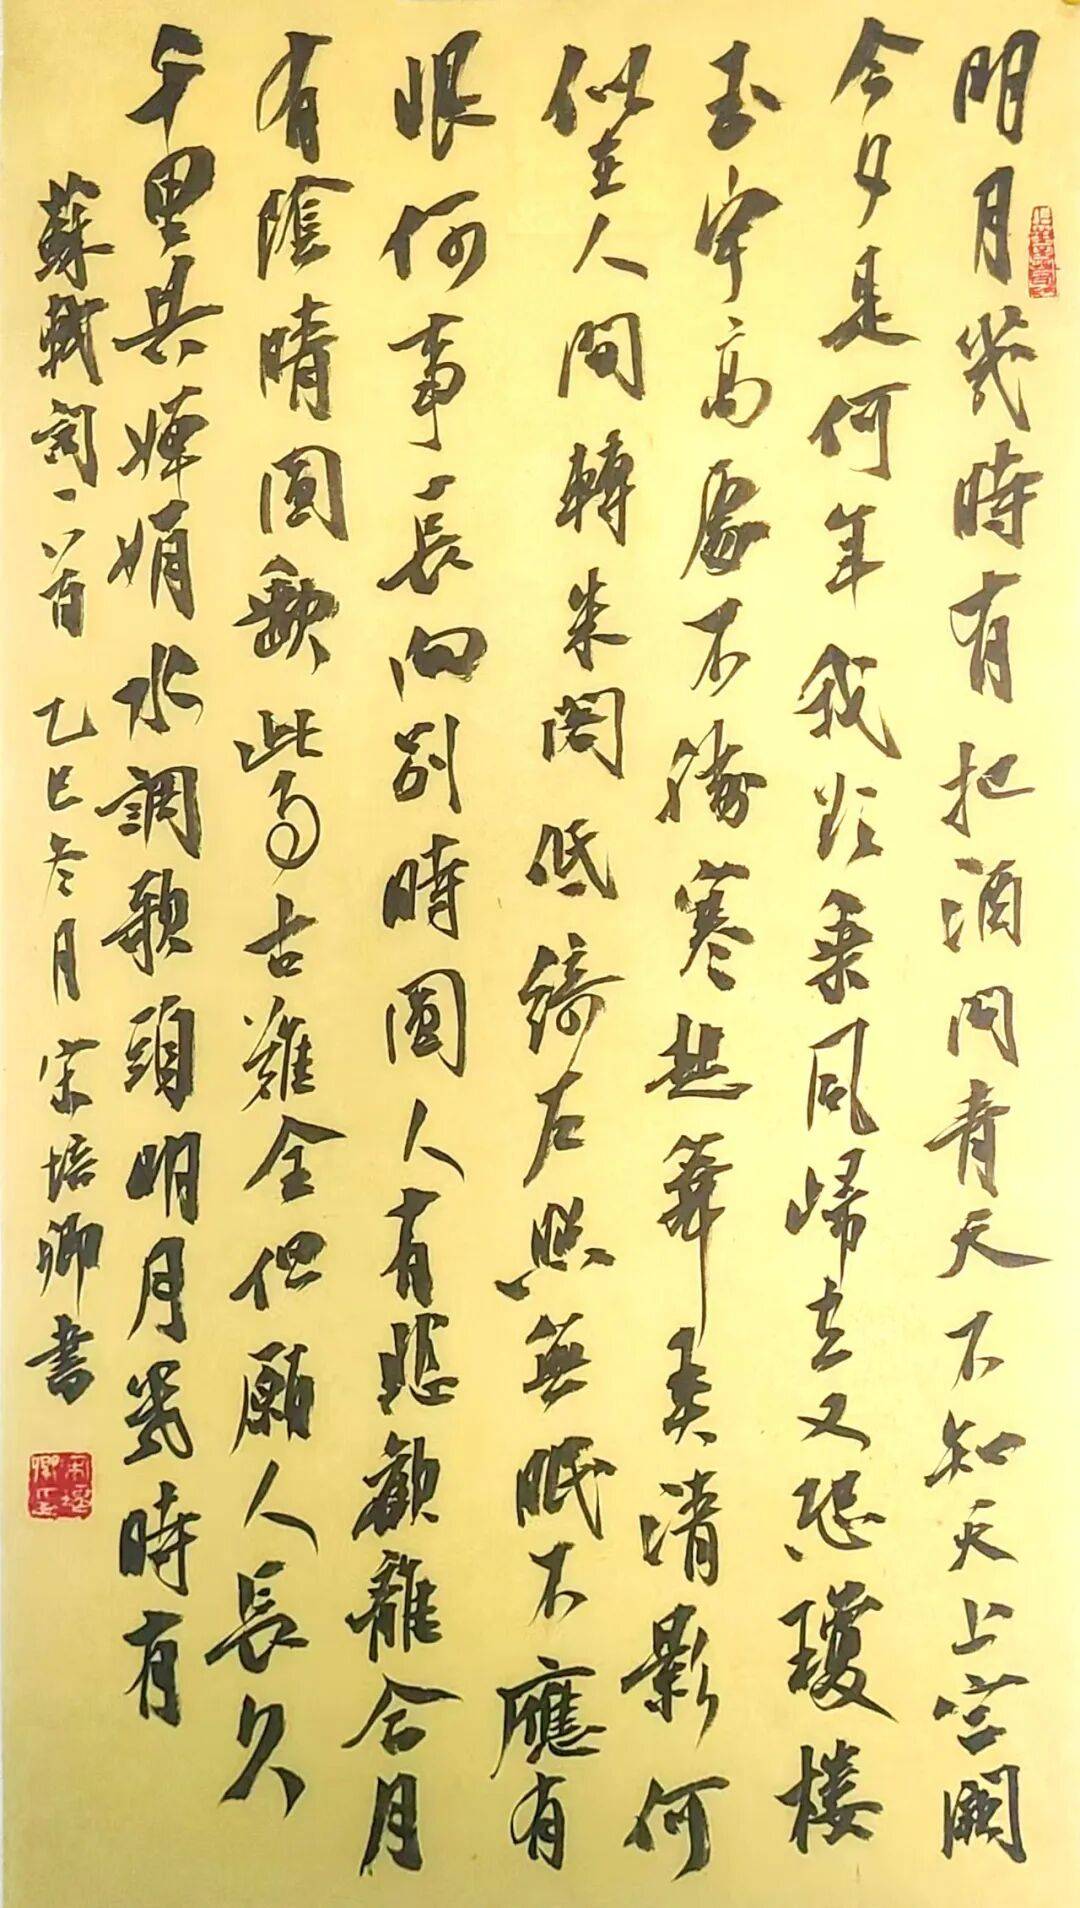 明月幾時有把酒問青天不知天上宫闕
今夕是何年我欲乗風歸去又恐瓊楼
玉宇高處不勝寒起舞弄清影何
似在人間轉朱閣低綺户照無眠不應有
恨何事長向别時圆人有悲歡離合月
有陰晴圆缺此事古難全但願人長久
千里共嬋娟水調歌頭明月幾時有
蘇軾詞一首 乙巳冬月 宋培卿書